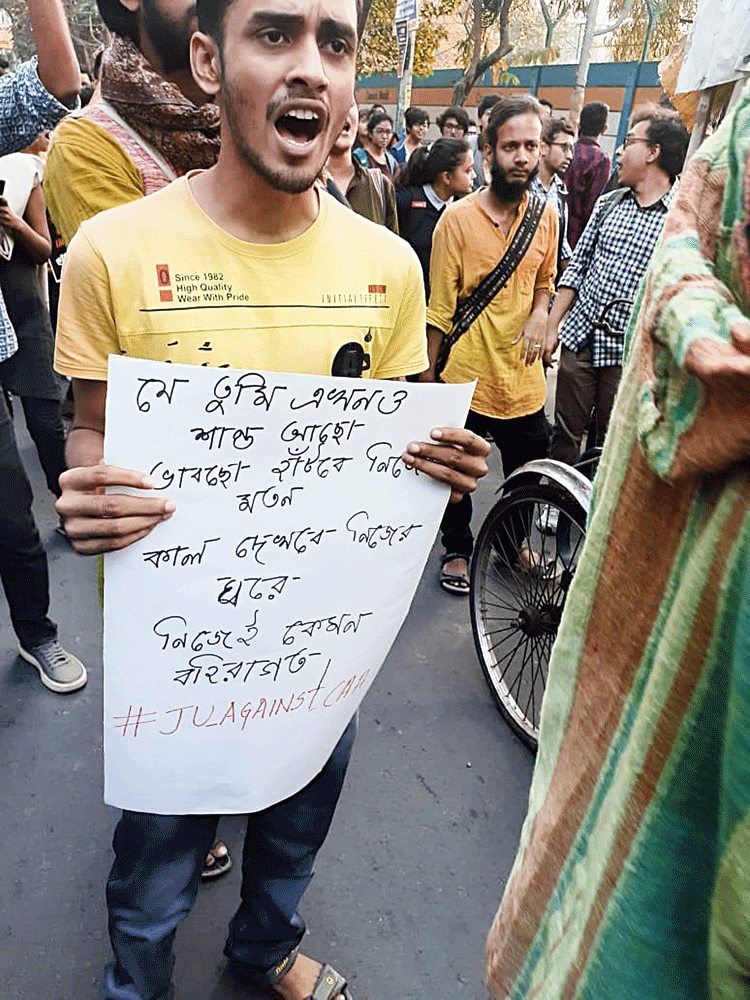 Since 1982
High Quality
Wear With Pride
INITIAL EFFECT
যে তুমি এখনও
শান্ত আছো
ভাবছো হাঁটবে নিজের
মতন
কাল দেখবে নিজের
ঘরে
নিজেই কেমন
বহিরাগত!
#JUAGAINSTCAA